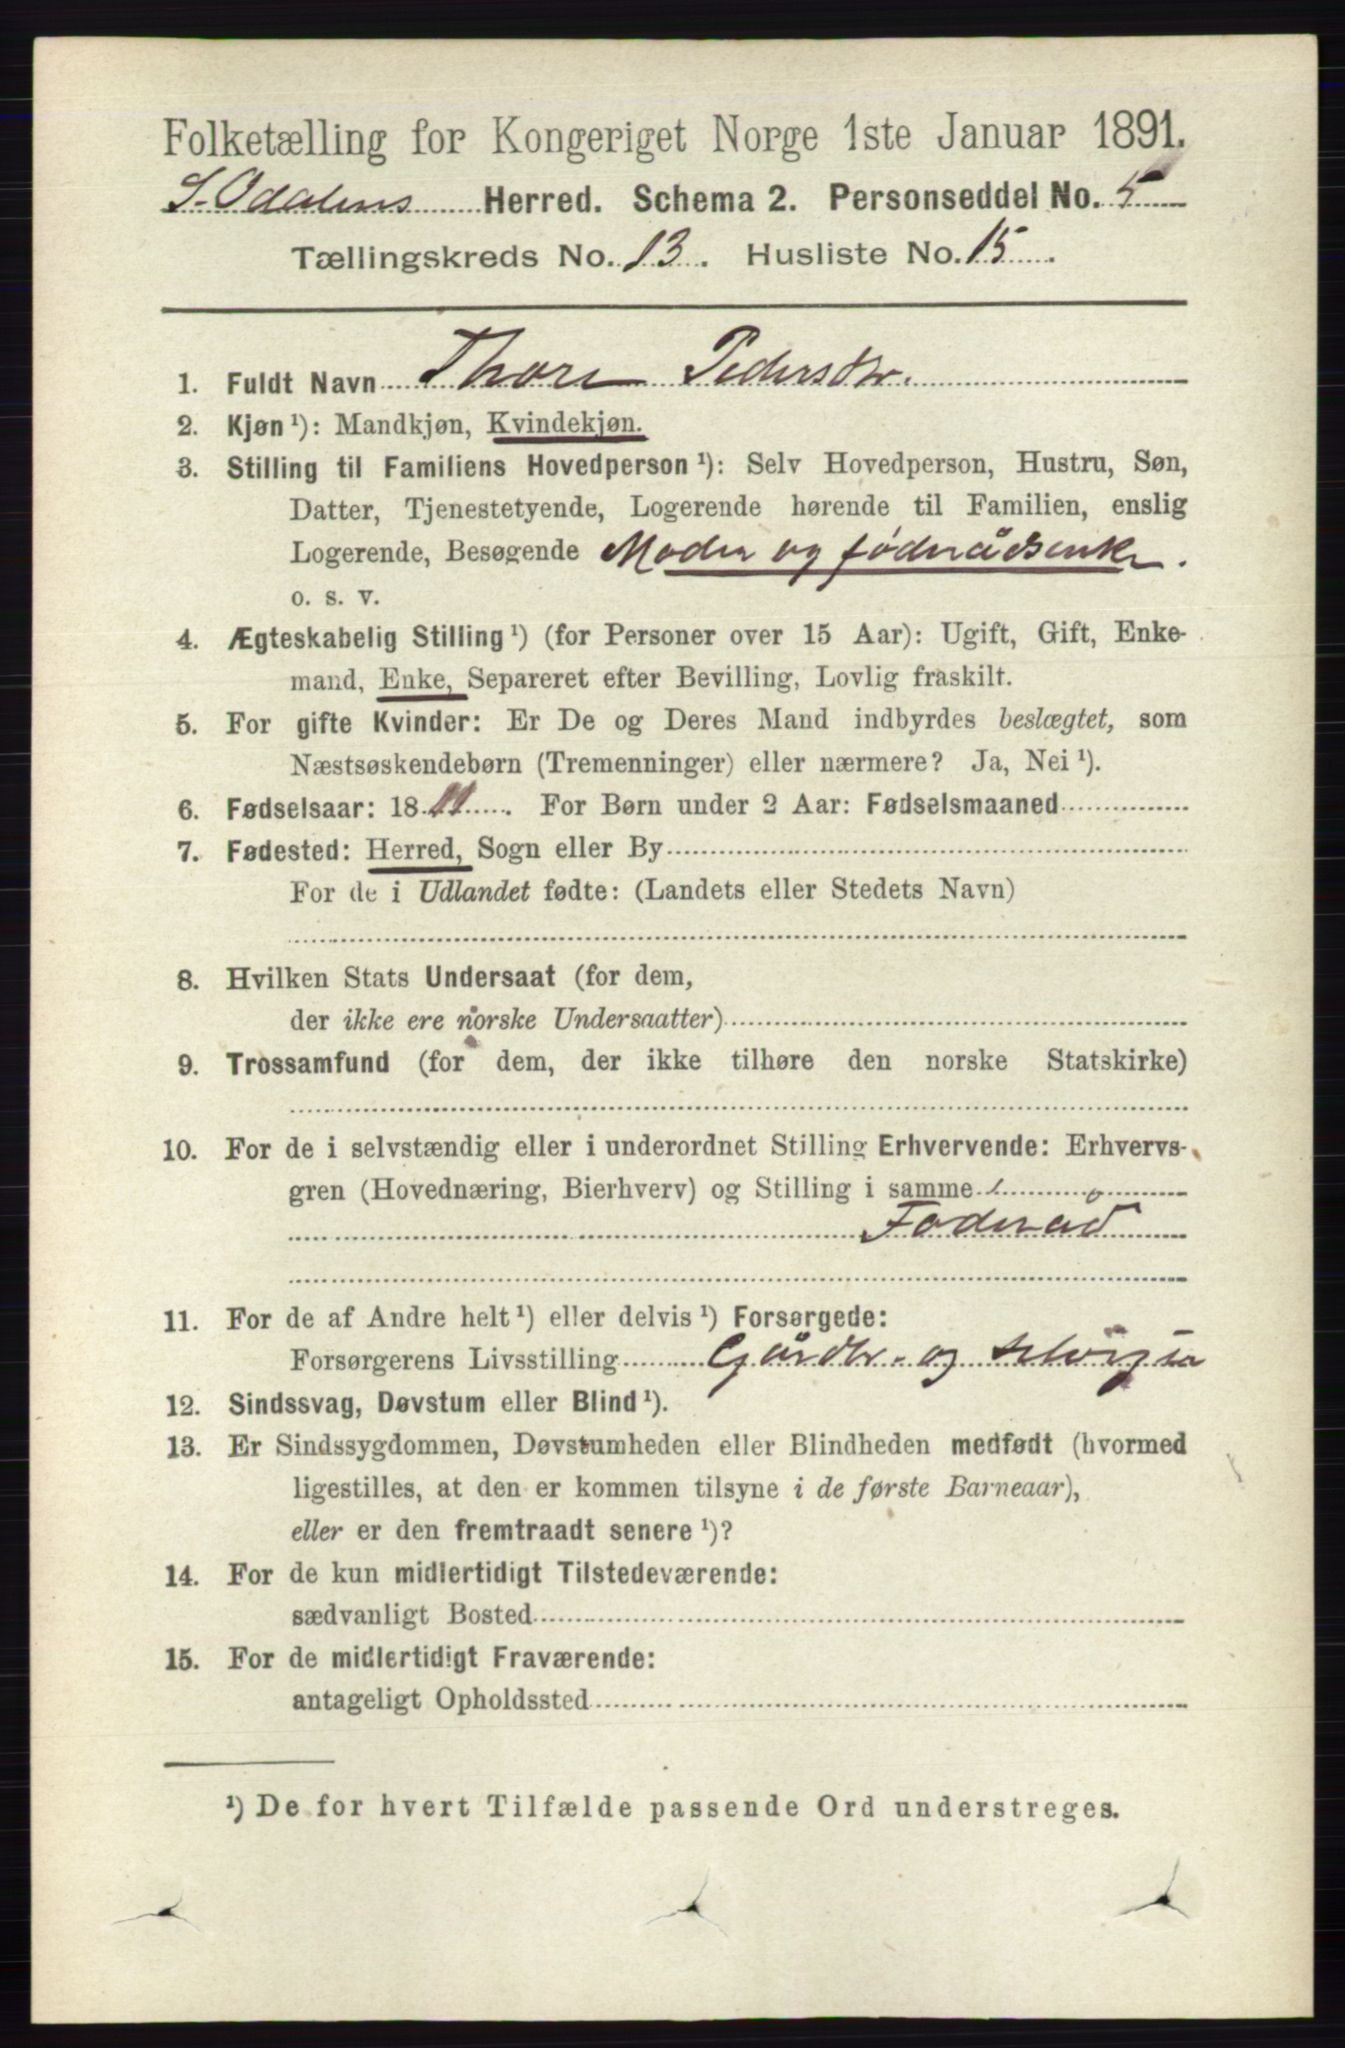 Folketælling for Kongeriget Norge 1ste Januar 1891.
S. Odalens Herred. Schema 2. Personseddel No. 5
Tællingskreds No. 13. Husliste No. 15.
1. Fuldt Navn Thore Pedersdtr.
2. Kjøn ¹): Mandkjøn, Kvindekjøn.
3. Stilling til Familiens Hovedperson ¹): Selv Hovedperson, Hustru, Søn,
Datter, Tjenestetyende, Logerende hørende til Familien, enslig
Logerende, Besøgende Moder og føderådsenke.
o. s. v.
4. Ægteskabelig Stilling ¹) (for Personer over 15 Aar): Ugift, Gift, Enke-
mand, Enke, Separeret efter Bevilling, Lovlig fraskilt.
5. For gifte Kvinder: Er De og Deres Mand indbyrdes beslægtet, som
Næstsøskendebørn (Tremenninger) eller nærmere? Ja, Nei ¹).
6. Fødselsaar: 1811. For Børn under 2 Aar: Fødselsmaaned
7. Fødested: Herred, Sogn eller By
For de i Udlandet fødte: (Landets eller Stedets Navn)
8. Hvilken Stats Undersaat (for dem,
der ikke ere norske Undersaatter)
9. Trossamfund (for dem, der ikke tilhøre den norske Statskirke)
10. For de i selvstændig eller i underordnet Stilling Erhvervende: Erhvervs-
gren (Hovednæring, Bierhverv) og Stilling i samme
Føderåd
11. For de af Andre helt ¹) eller delvis ¹) Forsørgede:
Forsørgerens Livsstilling Gårdbr. og selveier
12. Sindssvag, Døvstum eller Blind ¹).
13. Er Sindssygdommen, Døvstumheden eller Blindheden medfødt (hvormed
ligestilles, at den er kommen tilsyne i de første Barneaar),
eller er den fremtraadt senere ¹)?
14. For de kun midlertidigt Tilstedeværende:
sædvanligt Bosted
15. For de midlertidigt Fraværende:
antageligt Opholdssted
¹) De for hvert Tilfælde passende Ord understreges.